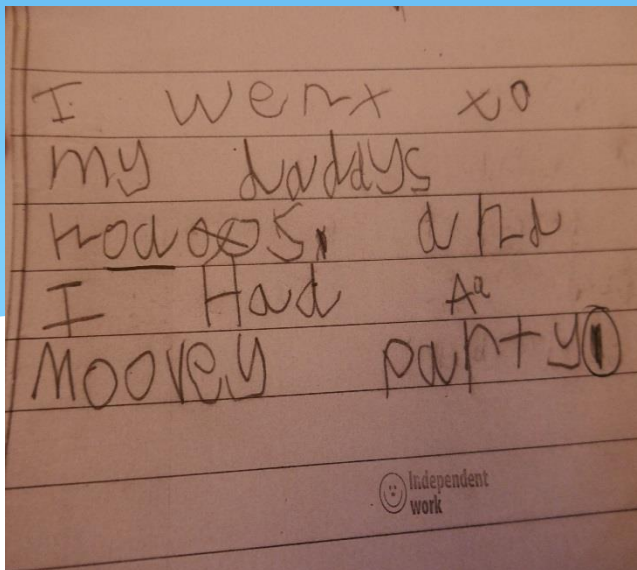 I went to
my daddys
and
I Had Aa
Moovey party
Independent
work